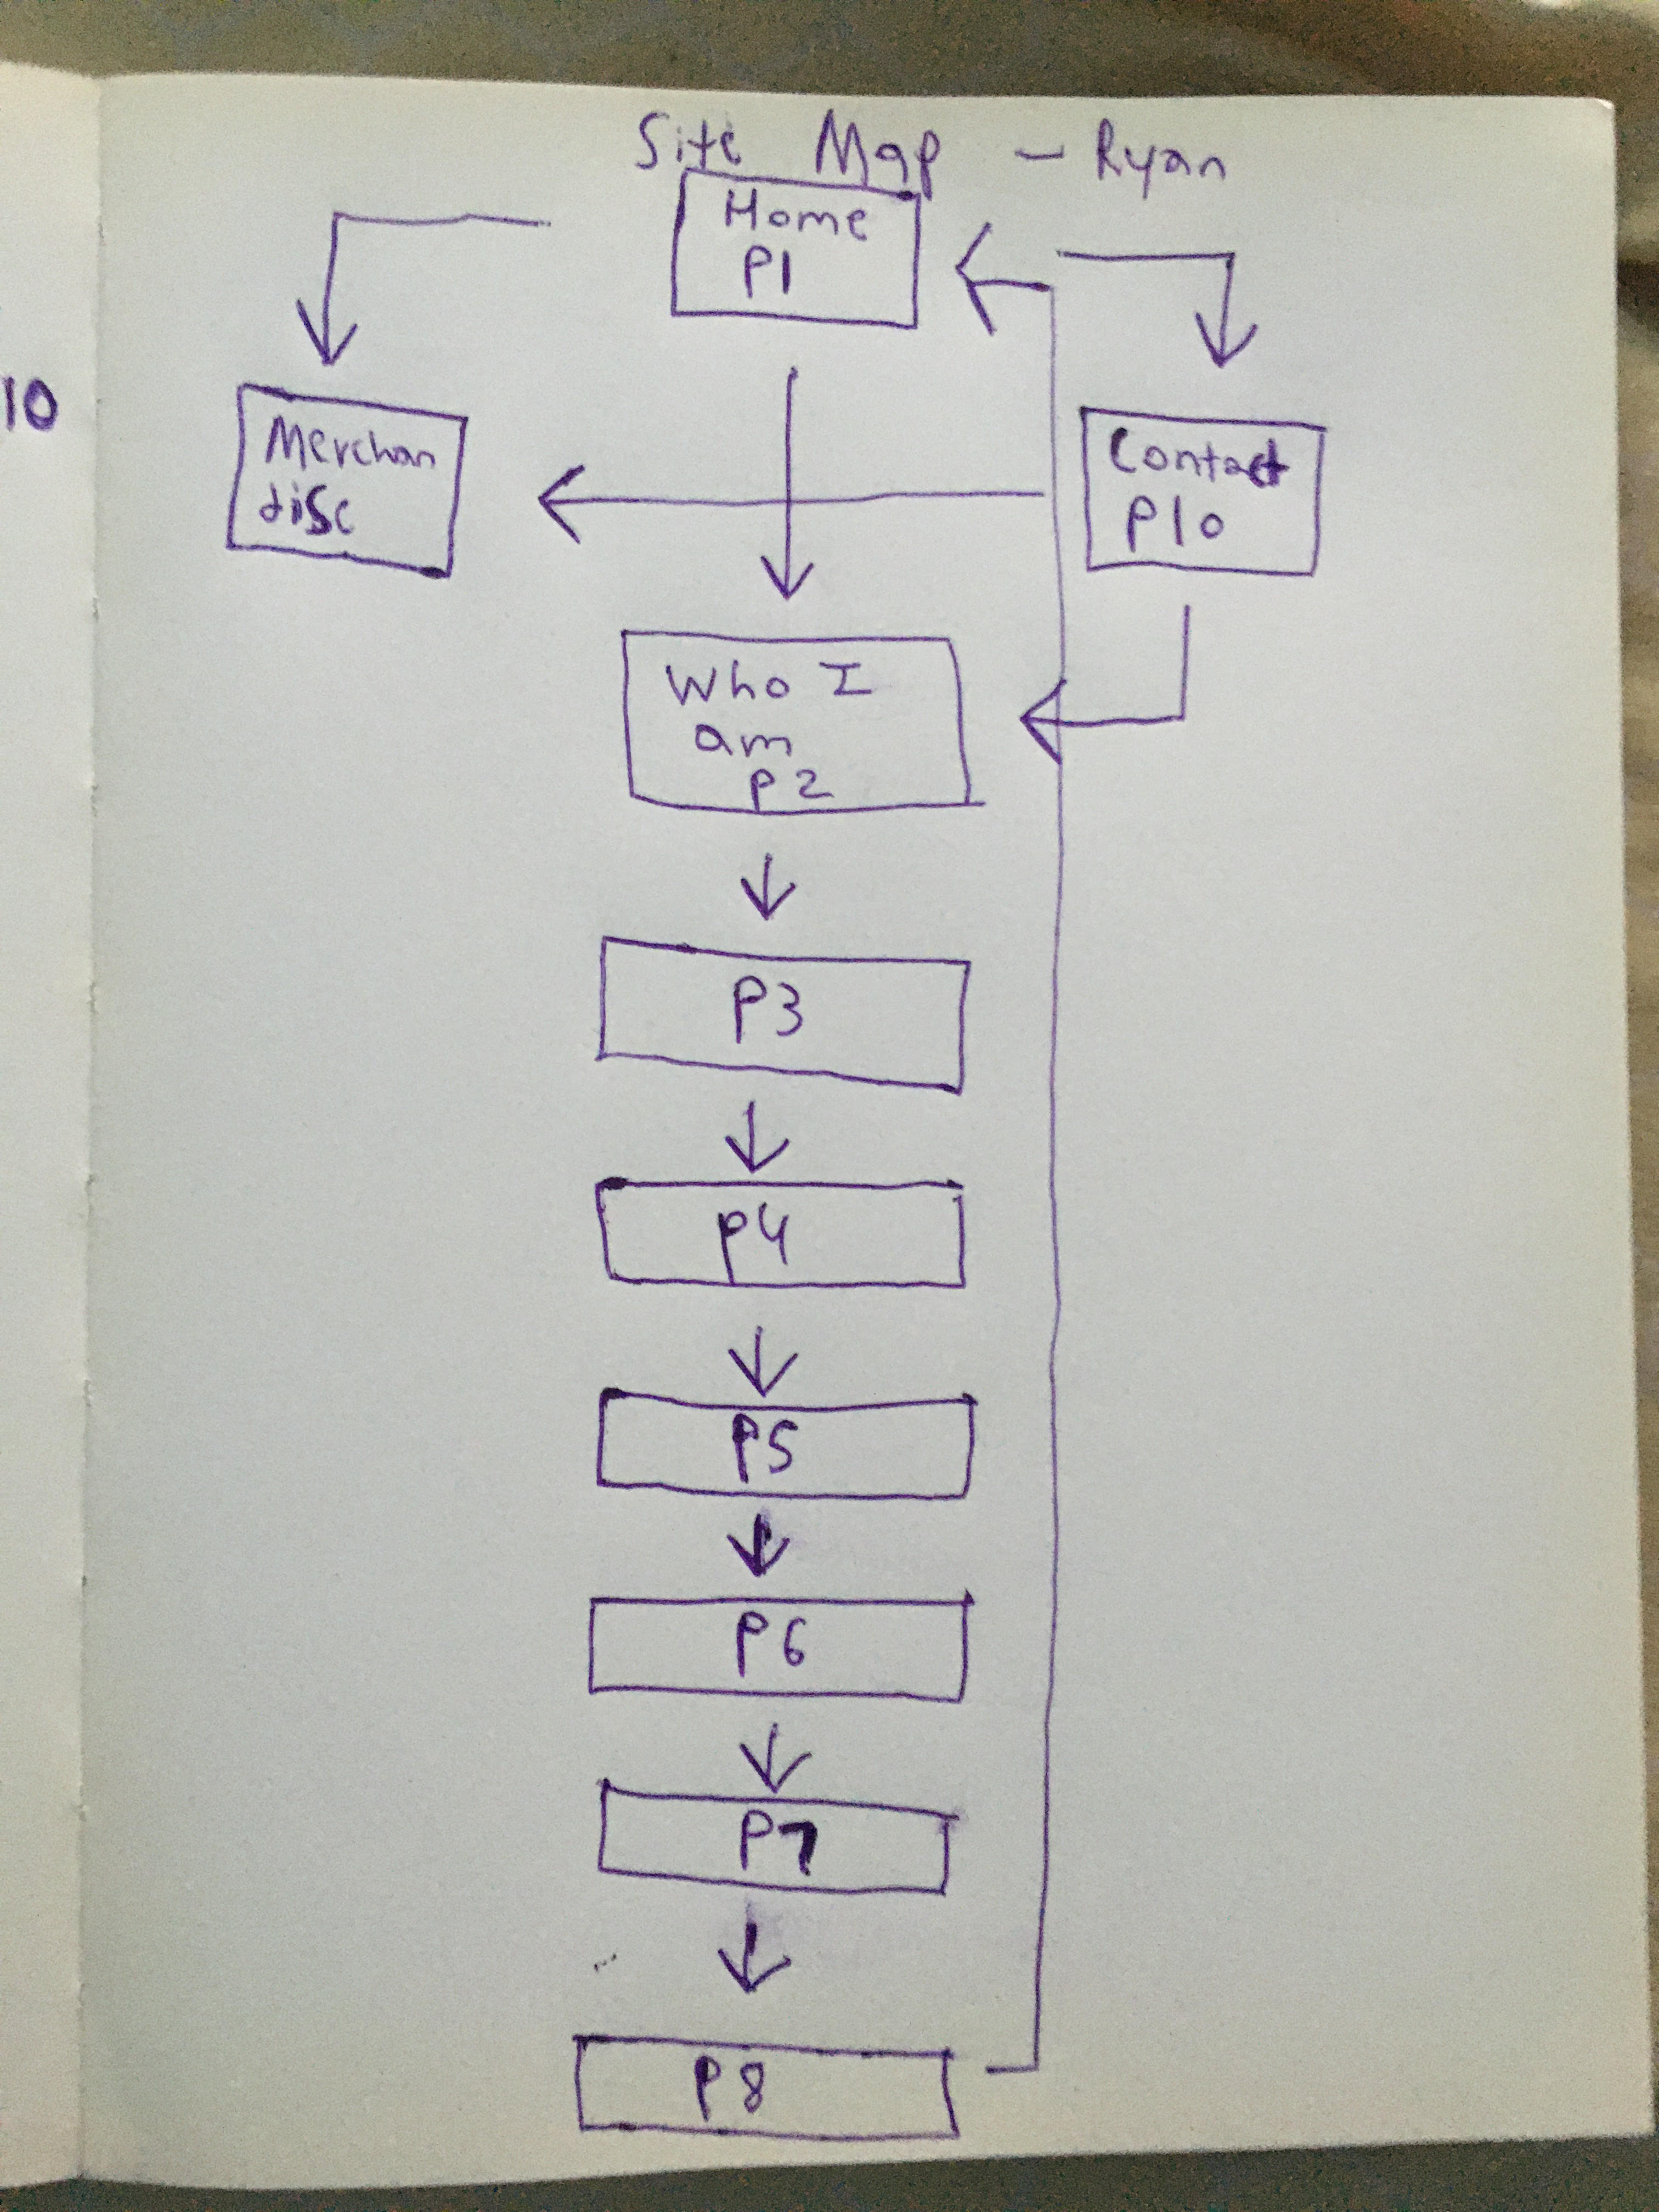 Site Map - Ryan
Home
P1
10
Merchan
disc
Contact
P10
Who I
am
P2
P3
P4
P5
P6
P7
P8